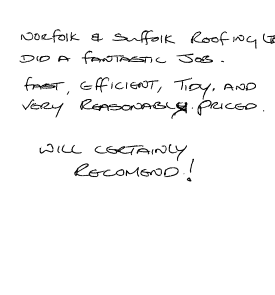 Norfolk & Suffolk Roofing
DID A FANTASTIC JOB.
FAST, EFFICIENT, TIDY, AND
VERY REASONABLY PRICED.
WILL CERTAINLY
RECOMEND!